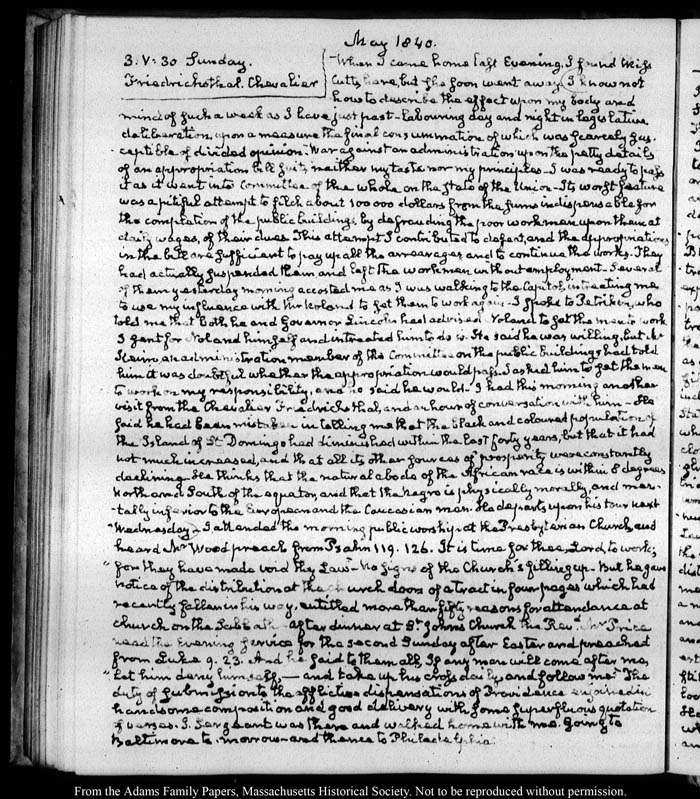 May 1840.
3. V:30 Sunday.
Friedrichsthal. Chevalier
When I came home last Evening, I found Miss
Cutts here, but she soon went away. I know not
how to describe the effect upon my body and
mind of such a week as I have just past – labouring day and night in legislative
deliberation, upon a measure the final consummation of which was scarcely sus-
-ceptible of divided opinion. War against an administration upon the petty details
of an appropriation bill suits neither my taste nor my principles – I was ready to pass
it as it went into Committee of the whole on the State of the Union – Its worst feature
was a pitiful attempt to filch about 100 000 dollars from the sums indispensable for
the completion of the public buildings, by defrauding the poor workmen upon them at
daily wages, of their dues. This attempt I contributed to defeat, and the appropriations
in the bill are sufficient to pay up all the arrearages and to continue the works. They
had actually suspended them and left the workmen without employment – Several
of them yesterday morning accosted me as I was walking to the Capitol, intreating me
to use my influence with Mr Noland to get them to work again – I spoke to Petrikin, who
told me that both he and Governor Lincoln had advised Noland to set the men to work
I sent for Noland himself and intreated him to do so. He said he was willing, but Mr
Keim an administration member of the Committee on the public Buildings had told
him it was doubtful whether the appropriation would pass. I asked him to set the men
to work on my responsibility, and he said he would – I had this morning another
visit from the Chevalier Friedrichsthal, and an hour of conversation with him – He
said he had been mistaken in telling me that the black and coloured population of
the Island of St Domingo had diminished within the last forty years, but that it had
not much increased, and that all its other sources of prosperity were constantly
declining. He thinks that the natural abode of the African race is within 8 degrees
North and South of the equator, and that the negro is physically morally, and men-
-tally inferior to the European and the Caucasian man. He departs upon his tour next
Wednesday – I attended the morning public worship at the Presbyterian Church, and
heard Mr Wood preach from Psalm 119. 126. It is time for thee, Lord, to work;
" for they have made void thy Law – No signs of the Church's filling up – But he gave
notice of the distribution at the church doors of a tract in four pages which had
recently fallen in his way, entitled more than fifty reasons for attendance at
church on the Sabbath – after dinner at St. Johns Church the Revd. Mr Price
read the Evening service for the second Sunday after Easter and preached
from Luke 9. 23. And he said to them all, If any man will come after me,
" let him deny himself, – and take up his cross daily and follow me" The
duty of submission to the afflictive dispensations of Providence enjoined in
handsome composition and good delivery with some superfluous quotation
of verses. J. Sergeant was there and walked home with me. Going to
Baltimore to-morrow and thence to Philadelphia.
From the Adams Family Papers, Massachusetts Historical Society. Not to be reproduced without permission.